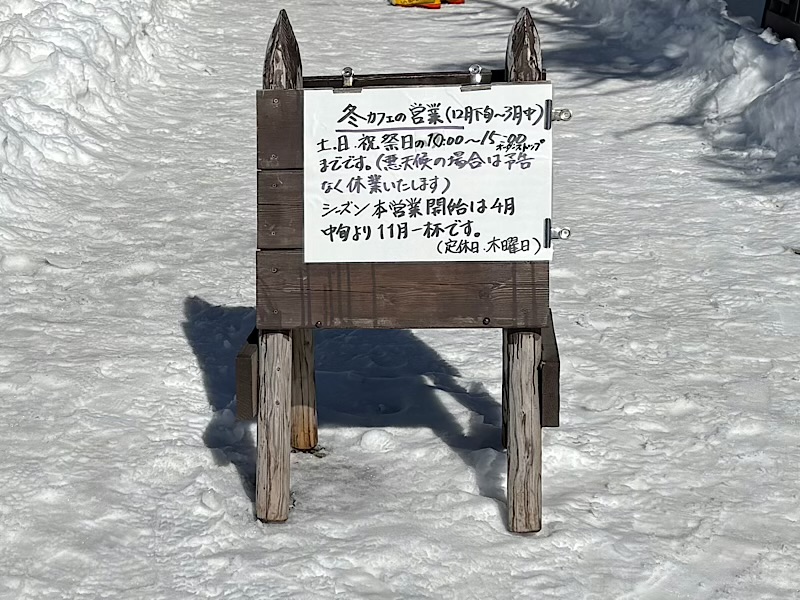 冬カフェの営業(12月下旬～3月中)
土.日.祝祭日の10:00～15:00
オーダーストップ
までです。(悪天候の場合は予告
なく休業いたします)
シーズン本営業開始は4月
中旬より11月一杯です。
(定休日.木曜日)